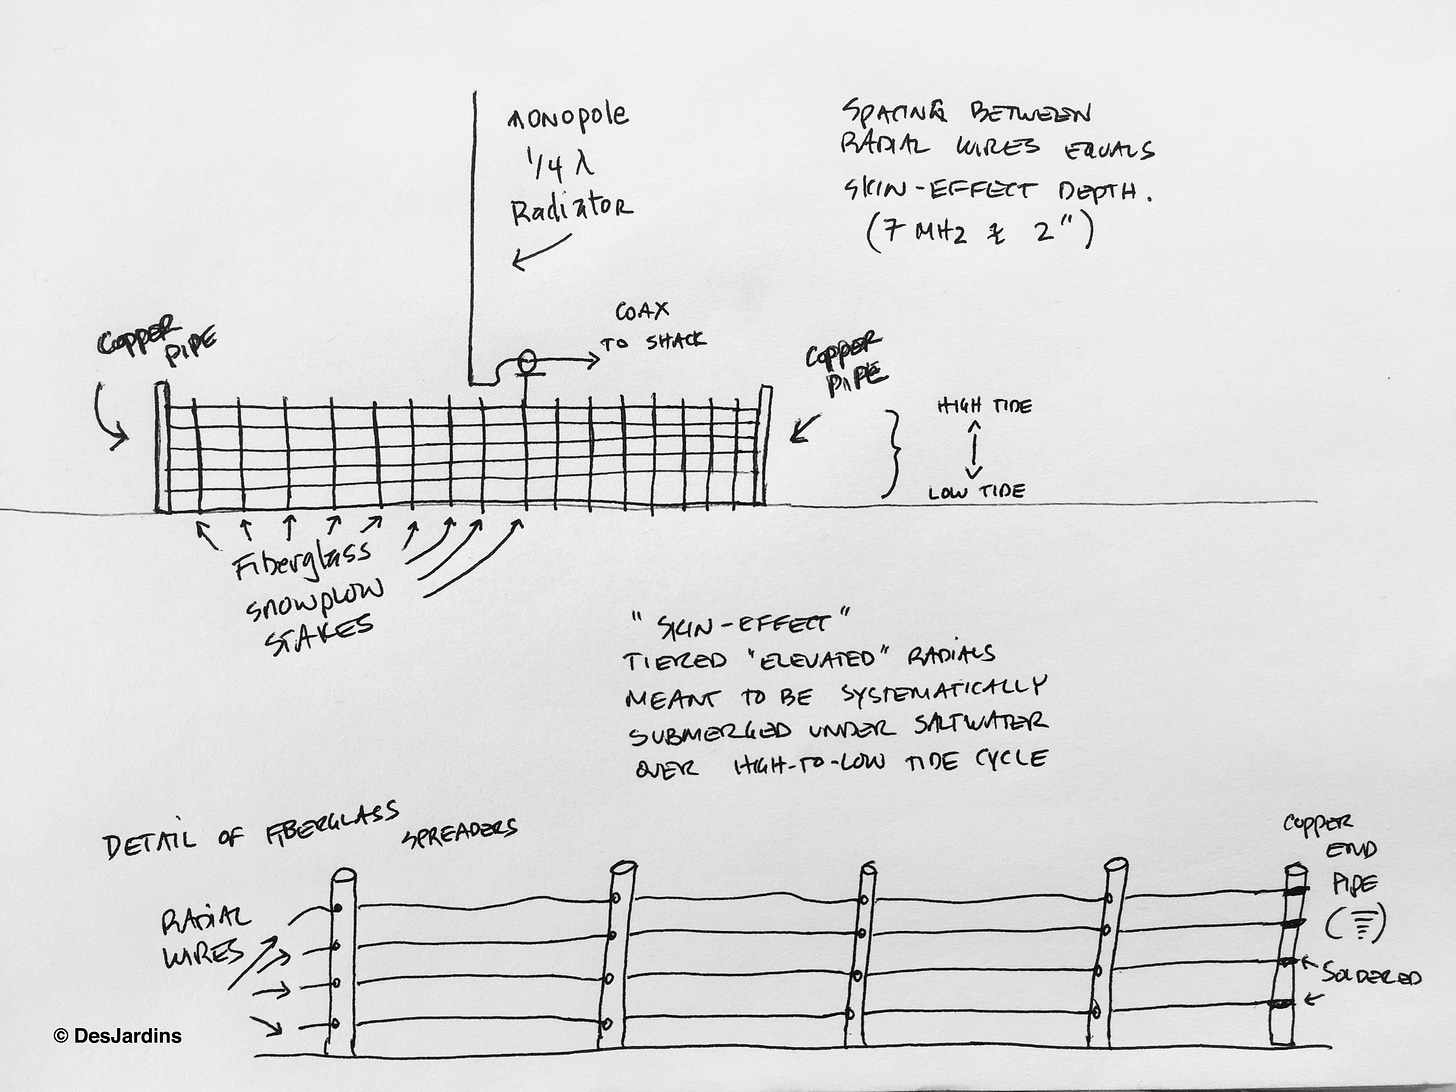 MONOPOLE
1/4 λ
Radiator
SPACING BETWEEN
RADIAL WIRES EQUALS
SKIN-EFFECT DEPTH.
(7 MHz ≈ 2")
COAX
TO SHACK
COPPER
PIPE
COPPER
PIPE
HIGH TIDE
LOW TIDE
Fiberglass
SNOWPLOW
STAKES
"SKIN-EFFECT"
TIERED "ELEVATED" RADIALS
MEANT TO BE SYSTEMATICALLY
SUBMERGED UNDER SALTWATER
OVER HIGH-TO-LOW TIDE CYCLE
DETAIL OF FIBERGLASS
SPREADERS
RADIAL
WIRES
COPPER
END
PIPE
SOLDERED
© DesJardins